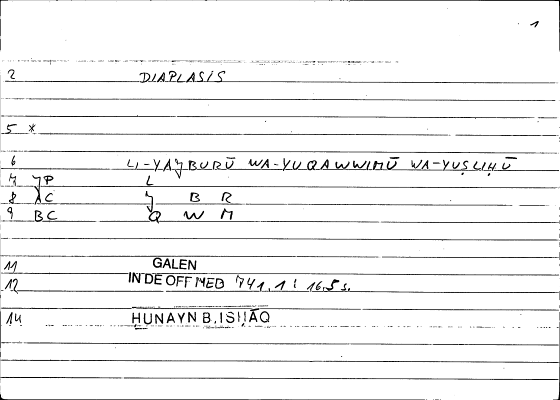 1
2 DIAPLASIS
5 *
6 LI-YAǦBURŪ WA-YUQAWWIMŪ WA-YUṢLIḤŪ
7 ǦP L
8 AC Ǧ B R
9 BC Q W M
11 GALEN
12 IN DE OFF MED 741,1 : 16,5 s.
14 ḤUNAYN B. ISḤĀQ